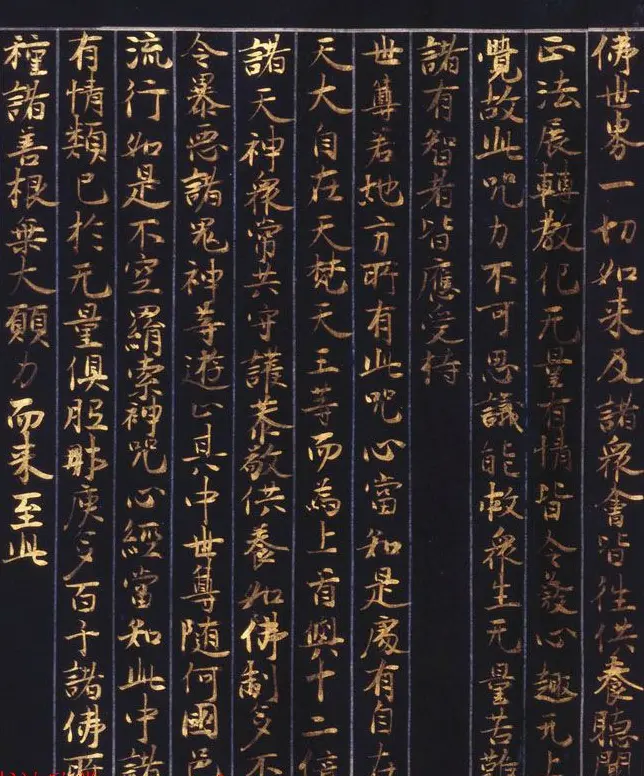 佛世界一切如来及諸衆會皆往供養聽聞
正法展轉教化无量有情皆令發心趣无上
覺故此咒力不可思議能救衆生无量苦
諸有智者皆應受持
世尊若地方所有此咒心當知是處有自在
天大自在天梵天王等而為上首與十二倍
諸天神衆常共守護恭敬供養如佛制多不
令暴惡諸鬼神等遊止其中世尊随何國邑
流行如是不空羂索神咒心經當知此中諸
有情類已於无量俱胝那庾多百千諸佛所
種諸善根乗大願力而来至此